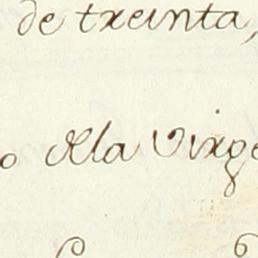 de treinta,
o dela Virge